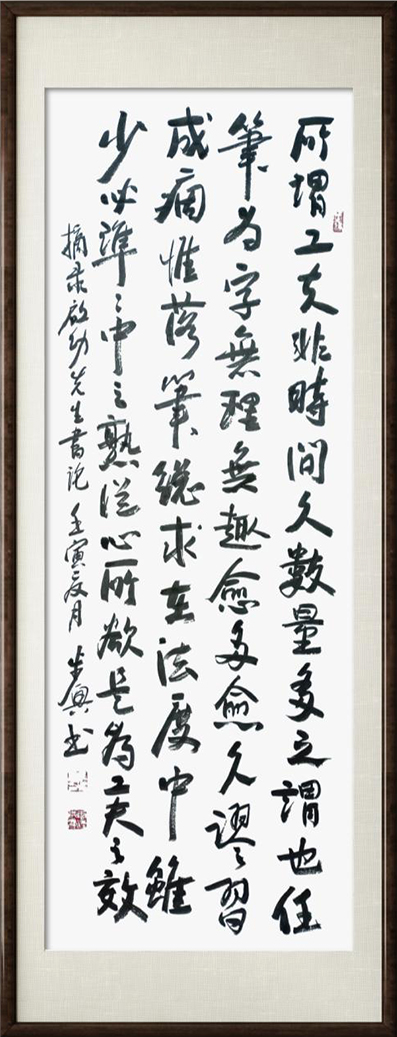 所謂工夫非時間久數量多之謂也任
筆为字無理無趣愈多愈久謬習
成痼惟落筆總求在法度中雖
少必準〻中之熟從心所欲是為工夫之效
摘录啟功先生書论壬寅夏月步興书